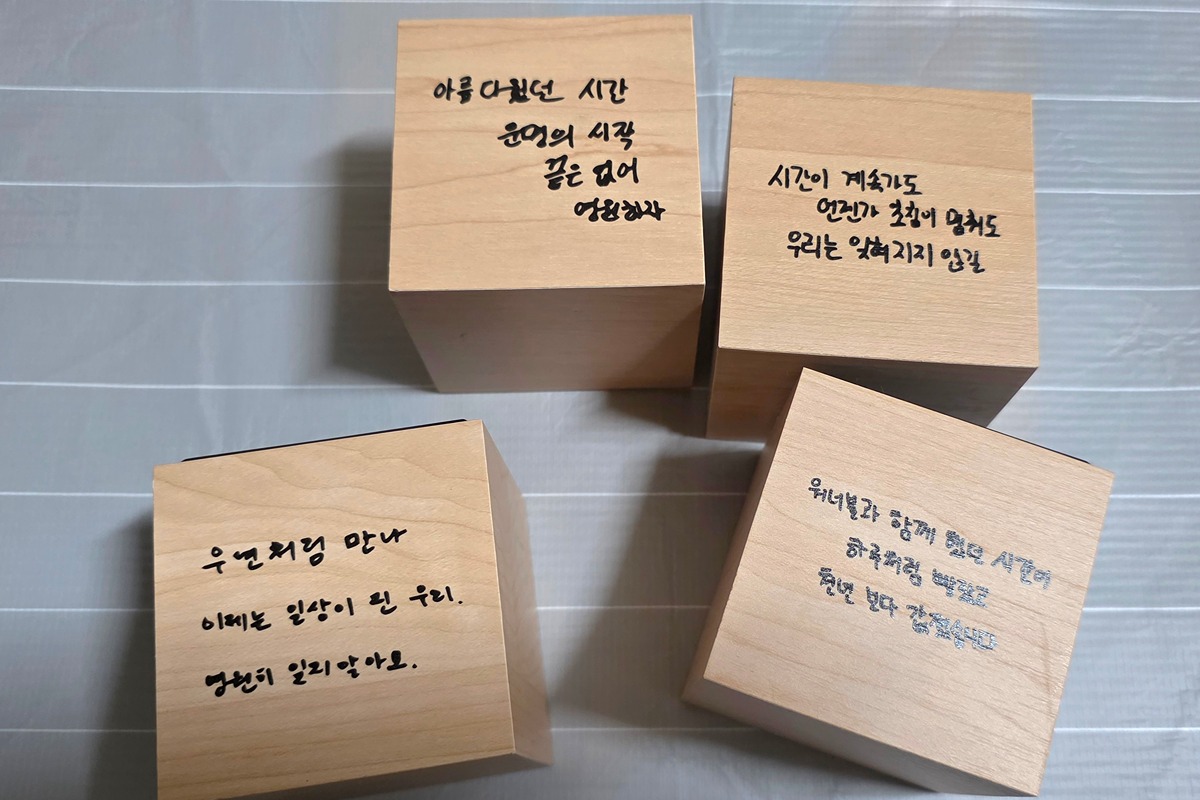 아름다웠던 시간
운명의 시작
끝은 없어
영원하자
시간이 계속가도
언젠가 초침이 멈춰도
우리는 잊혀지지 않길
우연처럼 만나
이제는 일상이 된 우리.
영원히 잊지말아요.
워너블과 함께 했던 시간이
하루처럼 빨랐고
천년 보다 값졌습니다